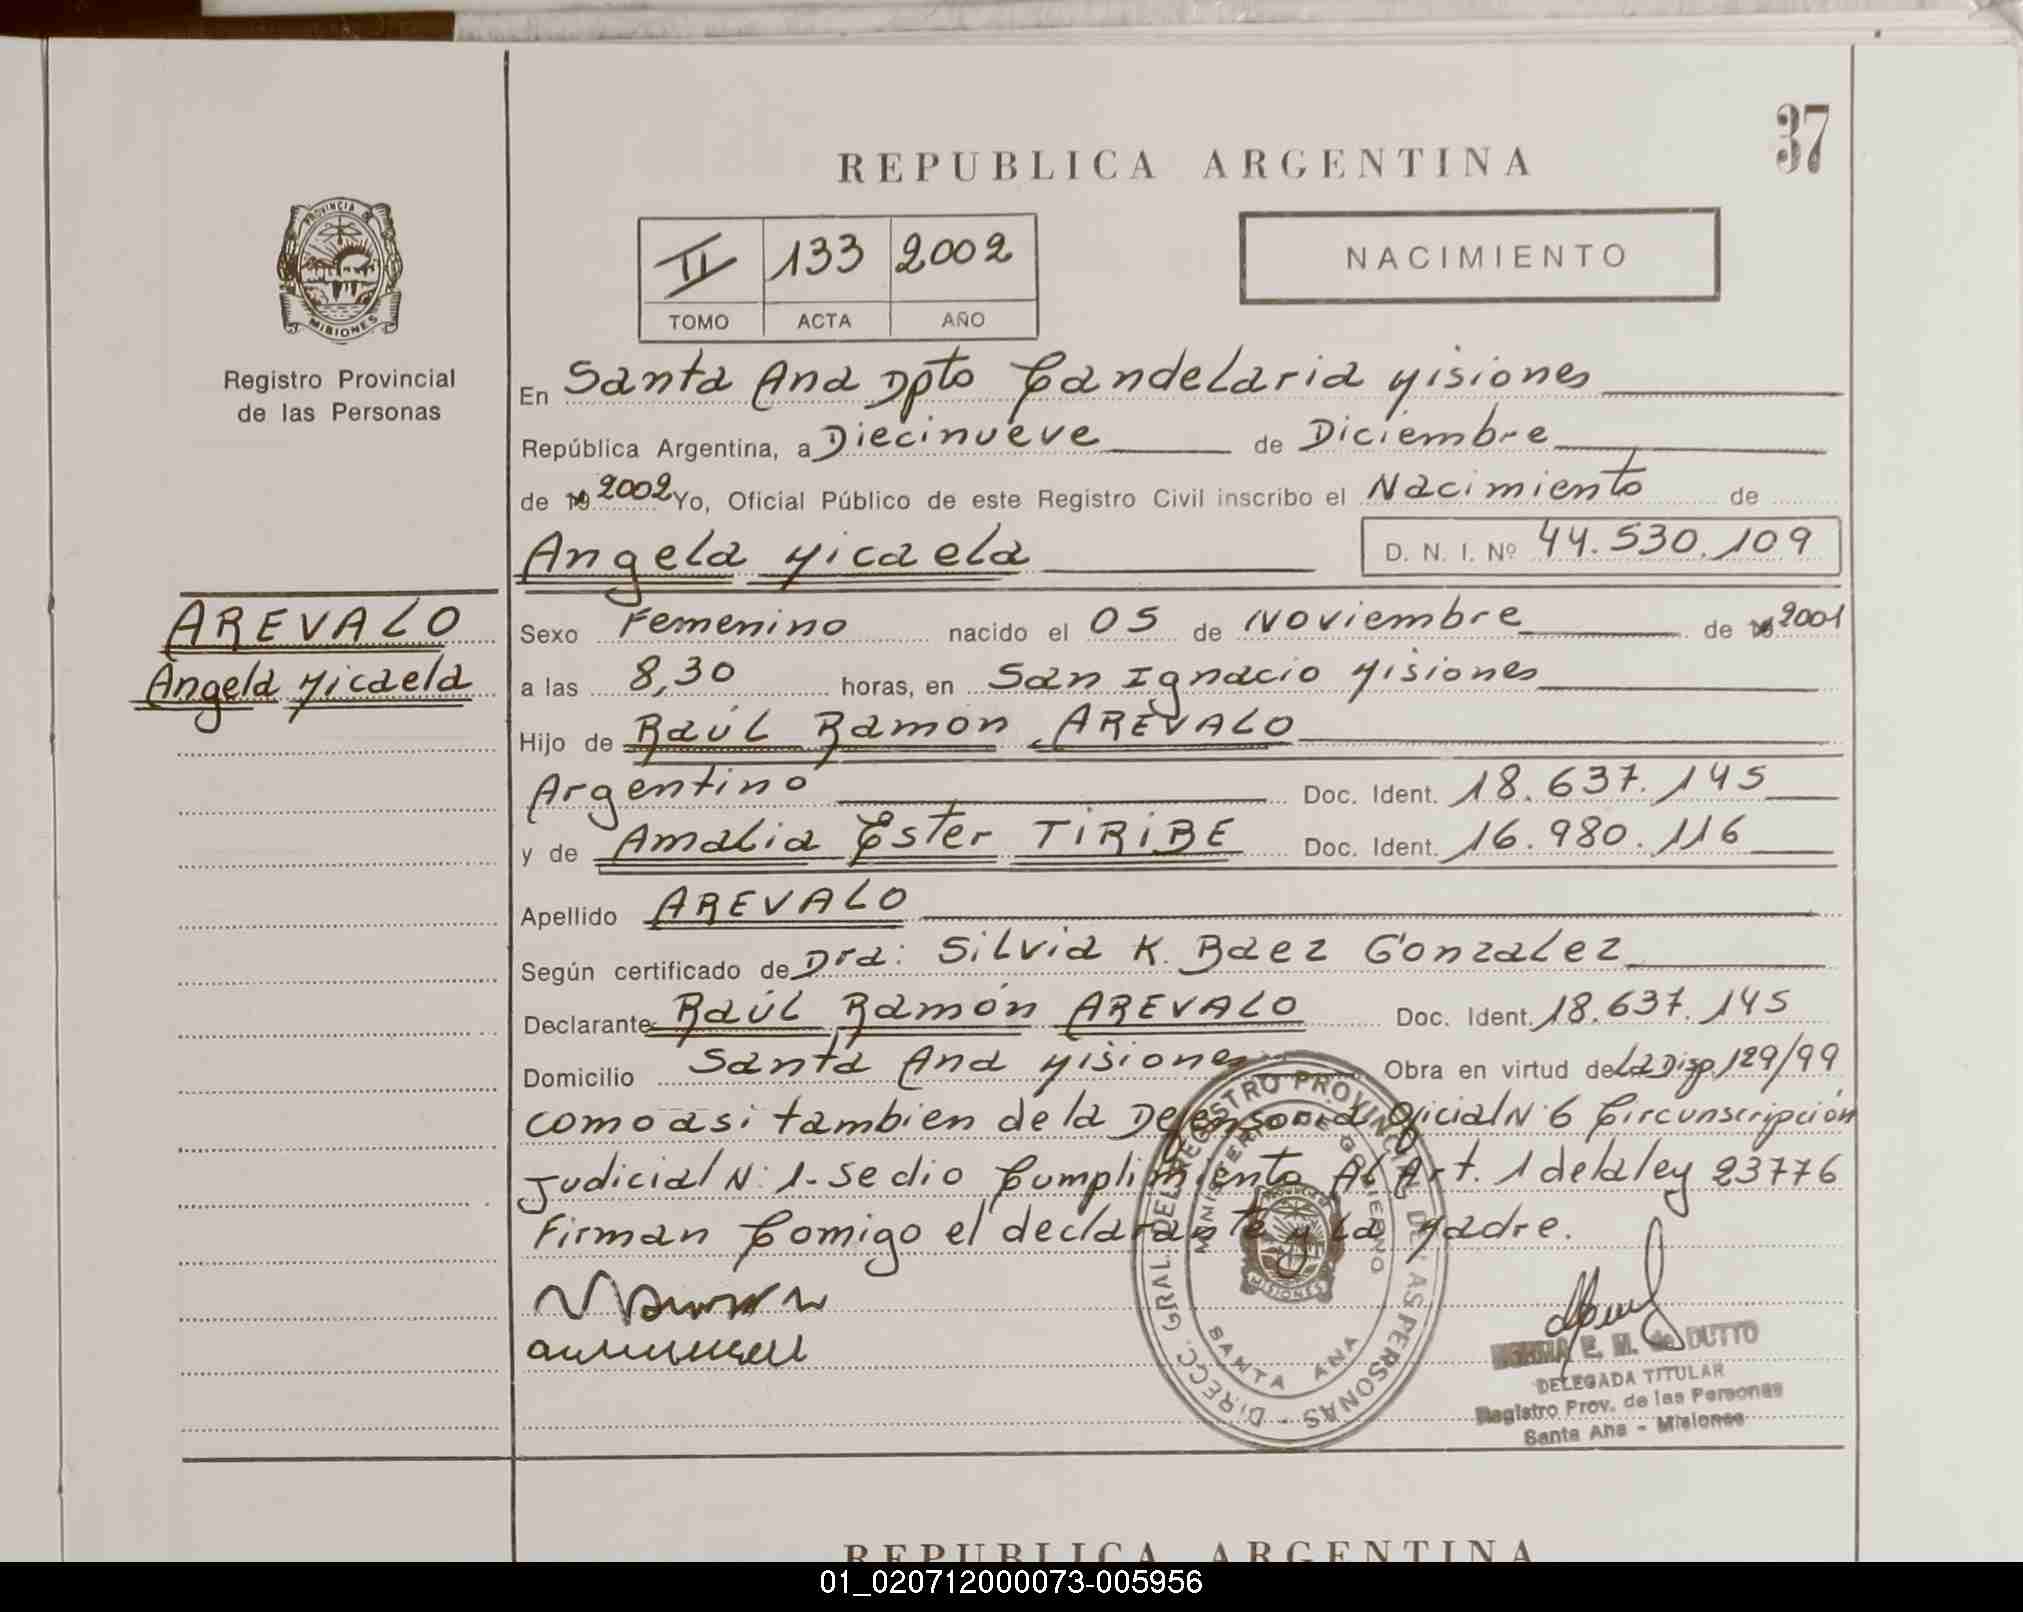 37
REPUBLICA ARGENTINA
PROVINCIA DE
MISIONES
II 133 2002
TOMO ACTA AÑO
NACIMIENTO
Registro Provincial
de las Personas
En Santa Ana Dpto Candelaria Misiones
República Argentina, a Diecinueve de Diciembre
de 19 2002 Yo, Oficial Público de este Registro Civil inscribo el Nacimiento de
Angela Micaela D. N. I. Nº 44.530.109
AREVALO
Angela Micaela
Sexo Femenino nacido el 05 de Noviembre de 19 2001
a las 8,30 horas, en San Ignacio Misiones
Hijo de Raúl Ramón AREVALO
Argentino Doc. Ident. 18.637.145
y de Amalia Ester TIRIBE Doc. Ident. 16.980.116
Apellido AREVALO
Según certificado de Dra: Silvia K. Baez Gonzalez
Declarante Raúl Ramón AREVALO Doc. Ident. 18.637.145
Domicilio Santa Ana Misiones Obra en virtud de La Disp. 129/99
como asi tambien de la Defensoria Oficial N: 6 Circunscripción
Judicial N: 1. Se dio Cumplimiento Al Art. 1 de la ley 23776
Firman Comigo el declarante y La Madre.
DIRECC. GRAL. DEL REGISTRO PROVINCIAL DE LAS PERSONAS
MINISTERIO DE GOBIERNO
SANTA ANA
MISIONES
E. M. de DUTTO
DELEGADA TITULAR
Registro Prov. de las Personas
Santa Ana - Misiones
REPUBLICA ARGENTINA
01_020712000073-005956